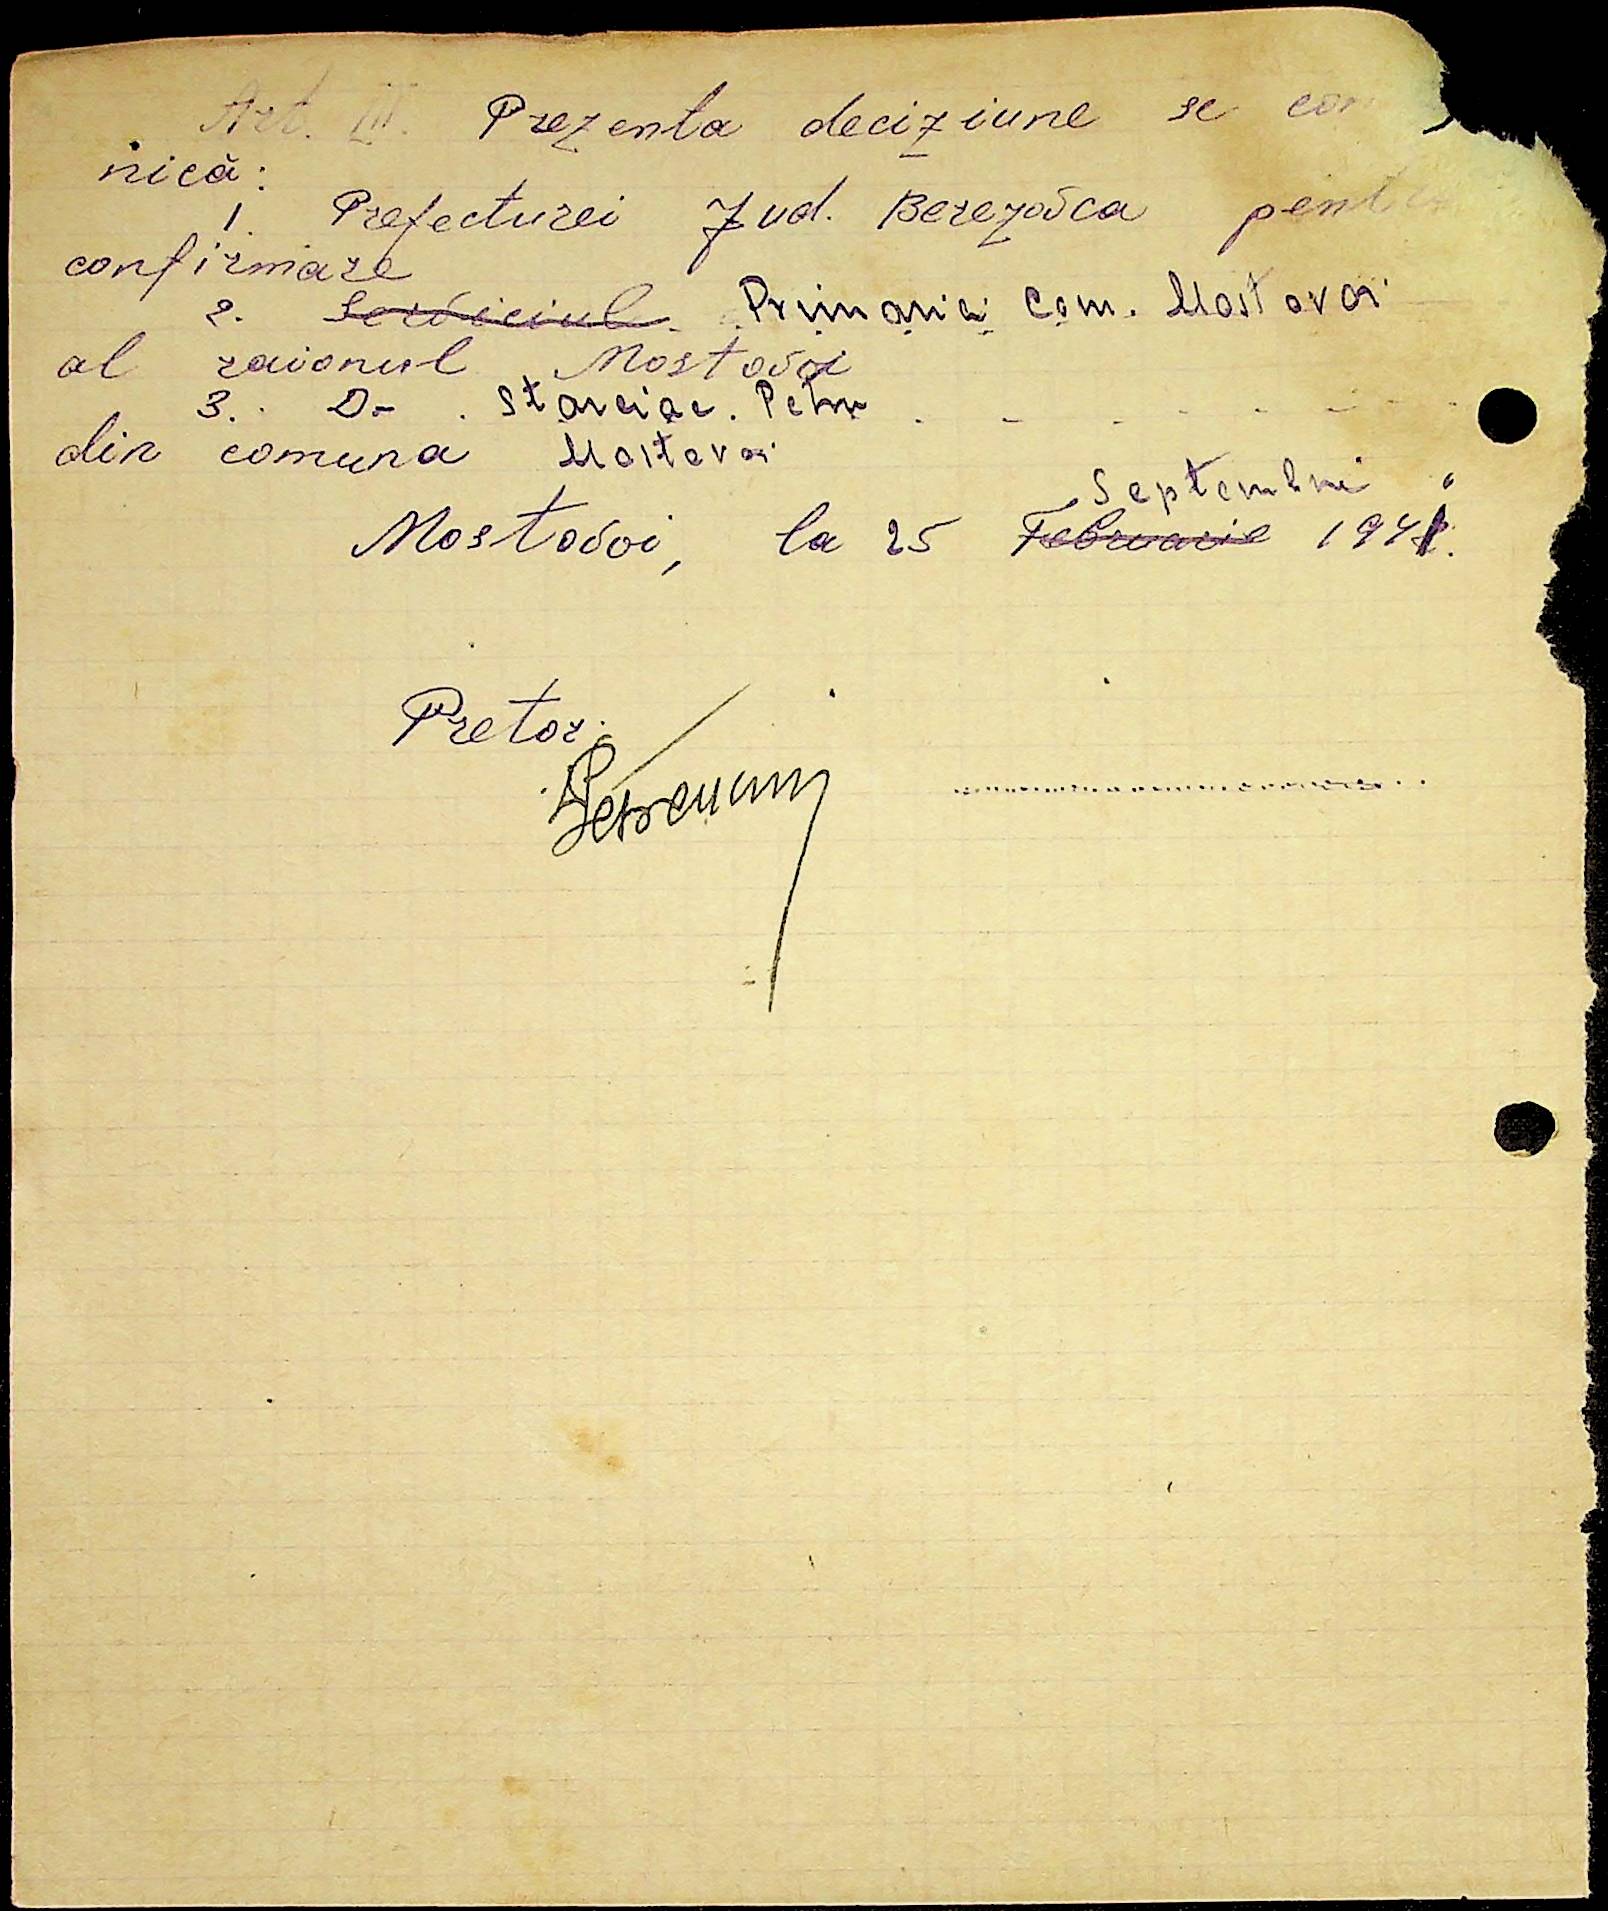 Art. III. Prezenta deciziune se com
nică:
1. Prefecturei Jud. Berezovca pentru
confirmare
2. Serviciul Primariei Com. Mostovoi
al raionul Mostovoi
3. D- Starciac. Petru
din comuna Mostovoi
Septembrie
Mostovoi, la 25 Februarie 194
Pretor: